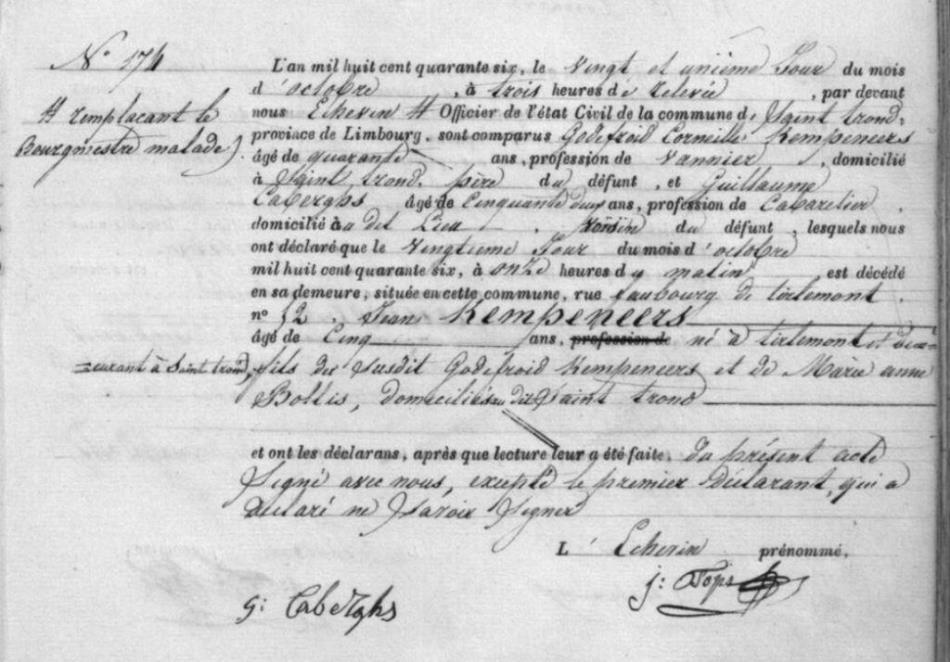 N° 174
L'an mil huit cent quarante six, le vingt et unième Jour du mois
d'octobre, à trois heures de relevée, par devant
nous Echevin # Officier de l'état Civil de la commune de Saint trond,
# remplaçant le
Bourgmestre malade).
province de Limbourg, sont comparus Godefroid Corneille Kempeneers
âgé de quarante ans, profession de vannier, domicilié
à Saint trond, père du défunt, et Guillaume
Caberghs âgé de Cinquante deux ans, profession de Cabaretier,
domicilié audit Lieu, voisin du défunt, lesquels nous
ont déclaré que le vingtieme Jour du mois d'octobre
mil huit cent quarante six, à onze heures du matin est décédé
en sa demeure, située en cette commune, rue faubourg de tirlemont,
n° 12. Jean Kempeneers
âgé de Cinq ans, profession de né à tirlemont et deme=
=eurant à Saint trond, fils des Susdit Godefroid Kempeneers et de Marie anne
Bollis, domiciliés au dit Saint trond
et ont les déclarans, après que lecture leur a été faite, du présent acte
Signé avec nous, excepté le premier Déclarant, qui a
declaré ne Savoir Signer
L'Echevin prénommé,
j: Tops
G: Caberghs